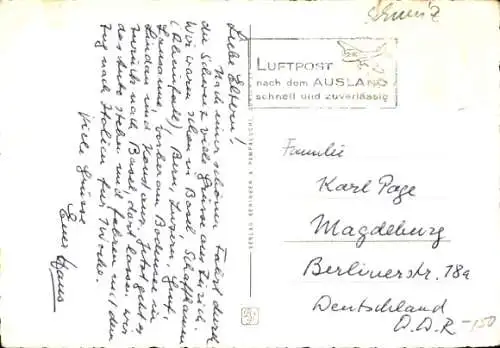 Schweiz
LUFTPOST
nach dem AUSLAND
schnell und zuverlässig
Liebe Eltern!
Nach einer schönen Fahrt durch
die Schweiz viele Grüsse aus Zürich.
Wir waren schon in Basel, Schaffhausen
(Rheinfall), Bern, Luzern, Genf,
Lausanne, vorher am Bodensee in
Lindau und Konstanz. Jetzt geht es
zurück nach Basel, dort lassen wir
das Auto stehen und fahren mit dem
Zug nach Italien für 1 Woche.
Viele Grüsse
Euer Hans
VERLAG BERINGER & PAMPALUCHI
Familie
Karl Page
Magdeburg
Berlinerstr. 18a
Deutschland
D.D.R.
-150